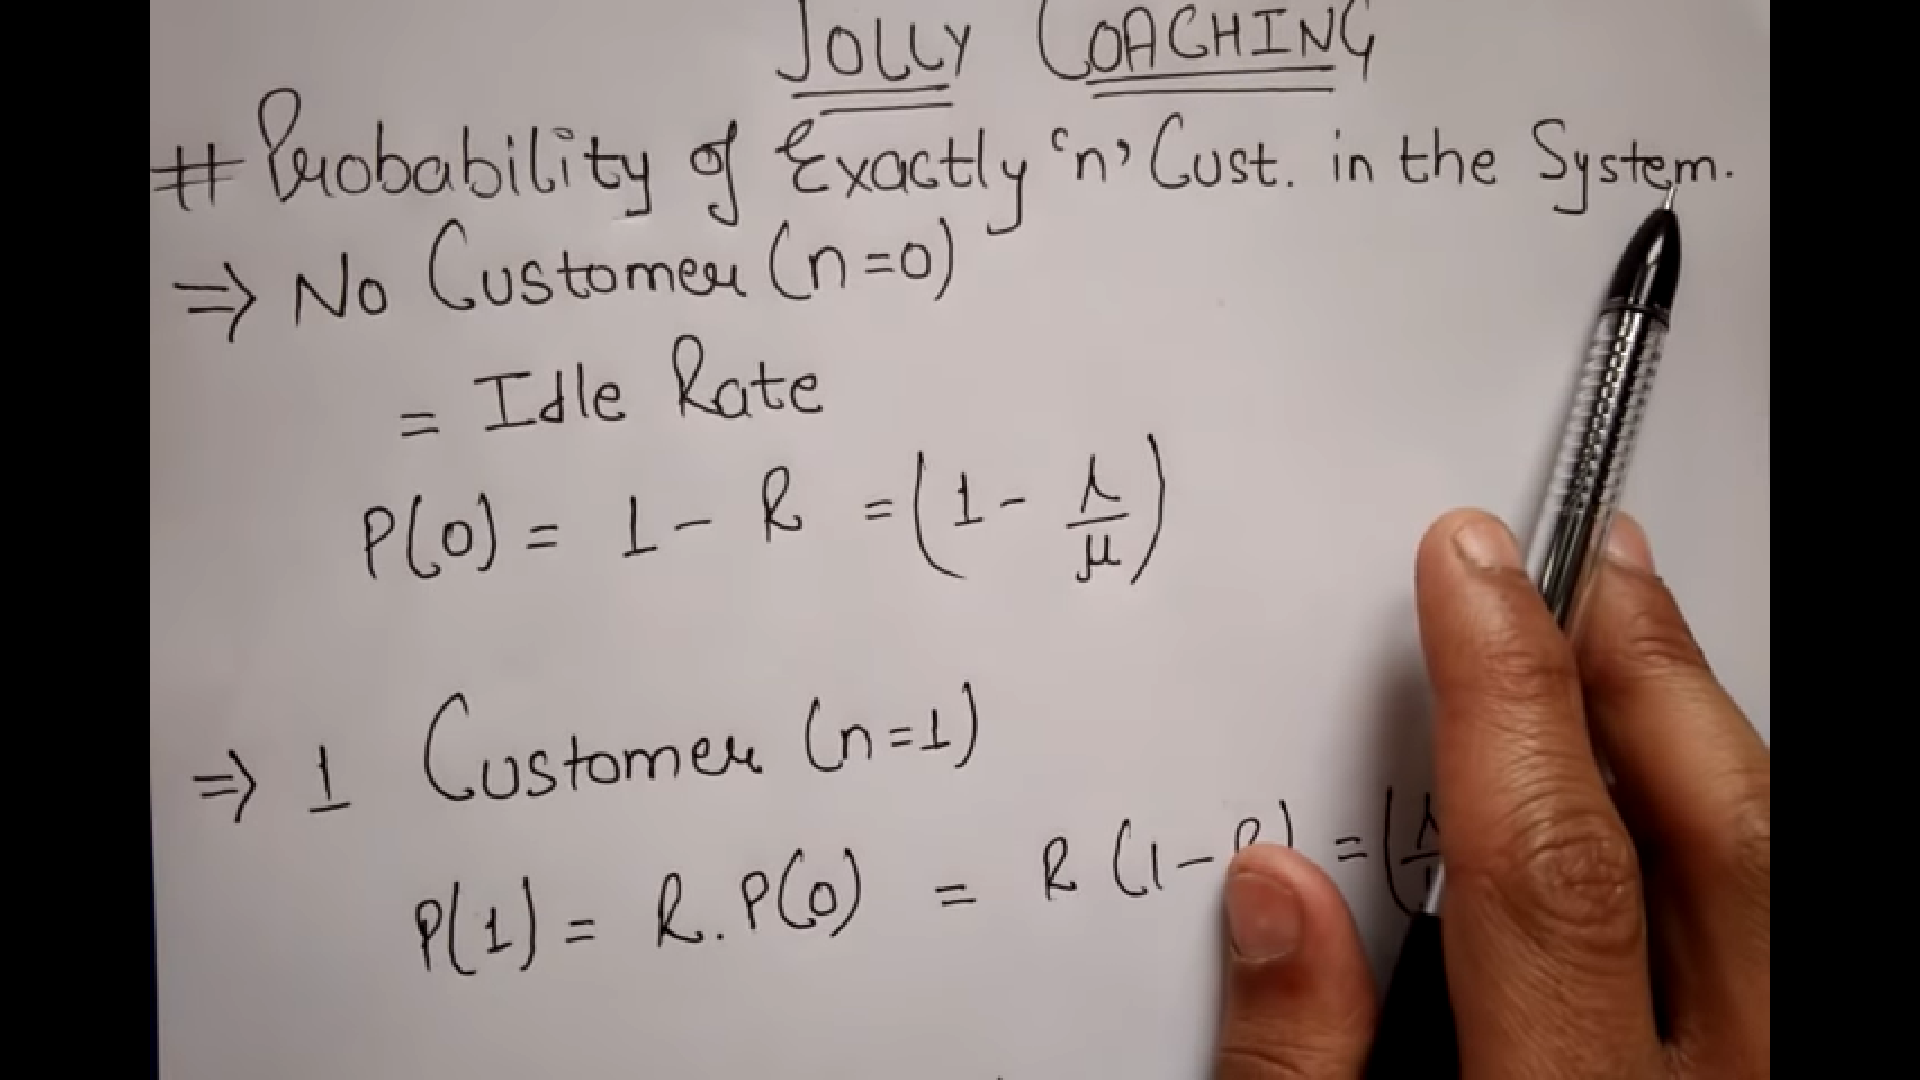 JOLLY COACHING
# Probability of Exactly 'n' Cust. in the System.
⇒ No Customer (n=0)
= Idle Rate
P(0) = 1 - R = (1 - λ/μ)
⇒ 1 Customer (n=1)
P(1) = R. P(0) = R (1-R) = (λ